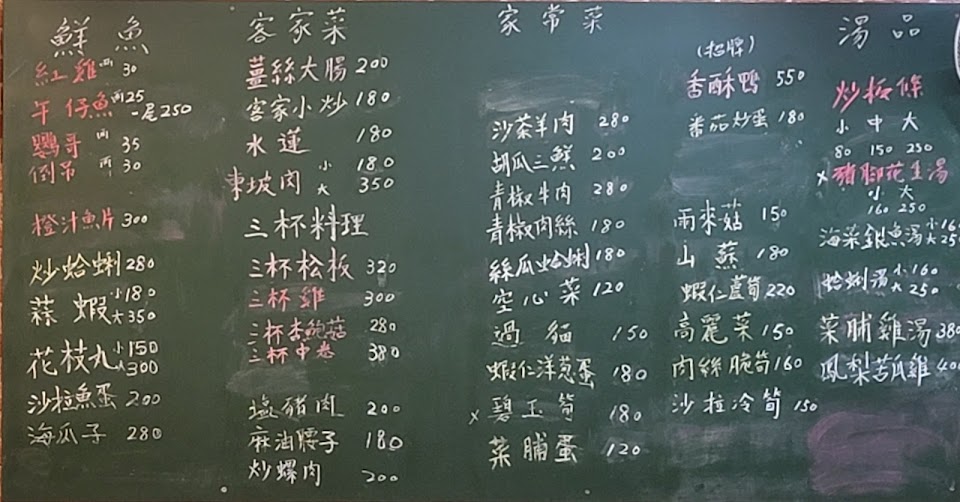 鮮魚
紅雞 兩30
午仔魚 兩25
一尾250
鸚哥 兩35
倒吊 兩30
橙汁魚片 300
炒蛤蜊 280
蒜蝦 小180
大350
花枝丸 小150
大300
沙拉魚蛋 200
海瓜子 280
客家菜
薑絲大腸 200
客家小炒 180
水蓮 180
東坡肉 小 180
大 350
三杯料理
三杯松板 320
三杯雞 300
三杯杏鮑菇 280
三杯中卷 380
塩豬肉 200
麻油腰子 180
炒螺肉 200
家常菜
沙茶羊肉 280
胡瓜三鮮 200
青椒牛肉 280
青椒肉絲 180
絲瓜蛤蜊 180
空心菜 120
過貓 150
蝦仁洋蔥蛋 180
x 碧玉筍 180
菜脯蛋 120
(招牌)
香酥鴨 550
番茄炒蛋 180
雨來菇 150
山蘇 180
蝦仁蘆筍 220
高麗菜 150
肉絲腕筍 160
沙拉冷筍 150
湯品
炒板條
小 中 大
80 150 250
x 豬腳花生湯
小 大
160 250
海菜銀魚湯 小160
大250
蛤蜊湯 小160
大250
菜脯雞湯 380
鳳梨苦瓜雞 400